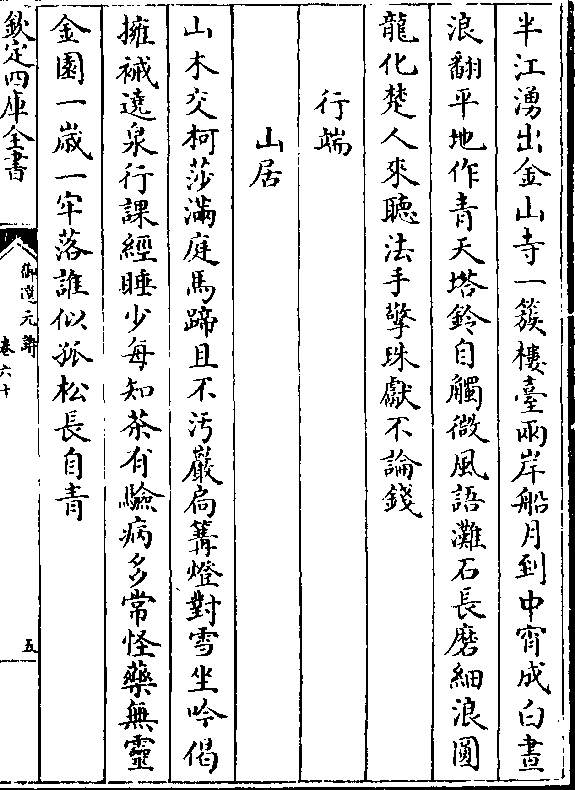 半江湧出金山寺一簇樓臺兩岸船月到中宵成白晝
浪翻平地作青天塔鈴自觸微風語灘石長磨細浪圓
龍化楚人來聽法手擎珠獻不論錢
行端
山居
山木交柯莎滿庭馬蹄且不汚巖扃篝燈對雪坐吟偈
擁衲遶泉行課經睡少每知茶有驗病多常怪藥無靈
金園一歲一牢落誰似孤松長自青
欽定四庫全書
御選元詩
卷六十
五